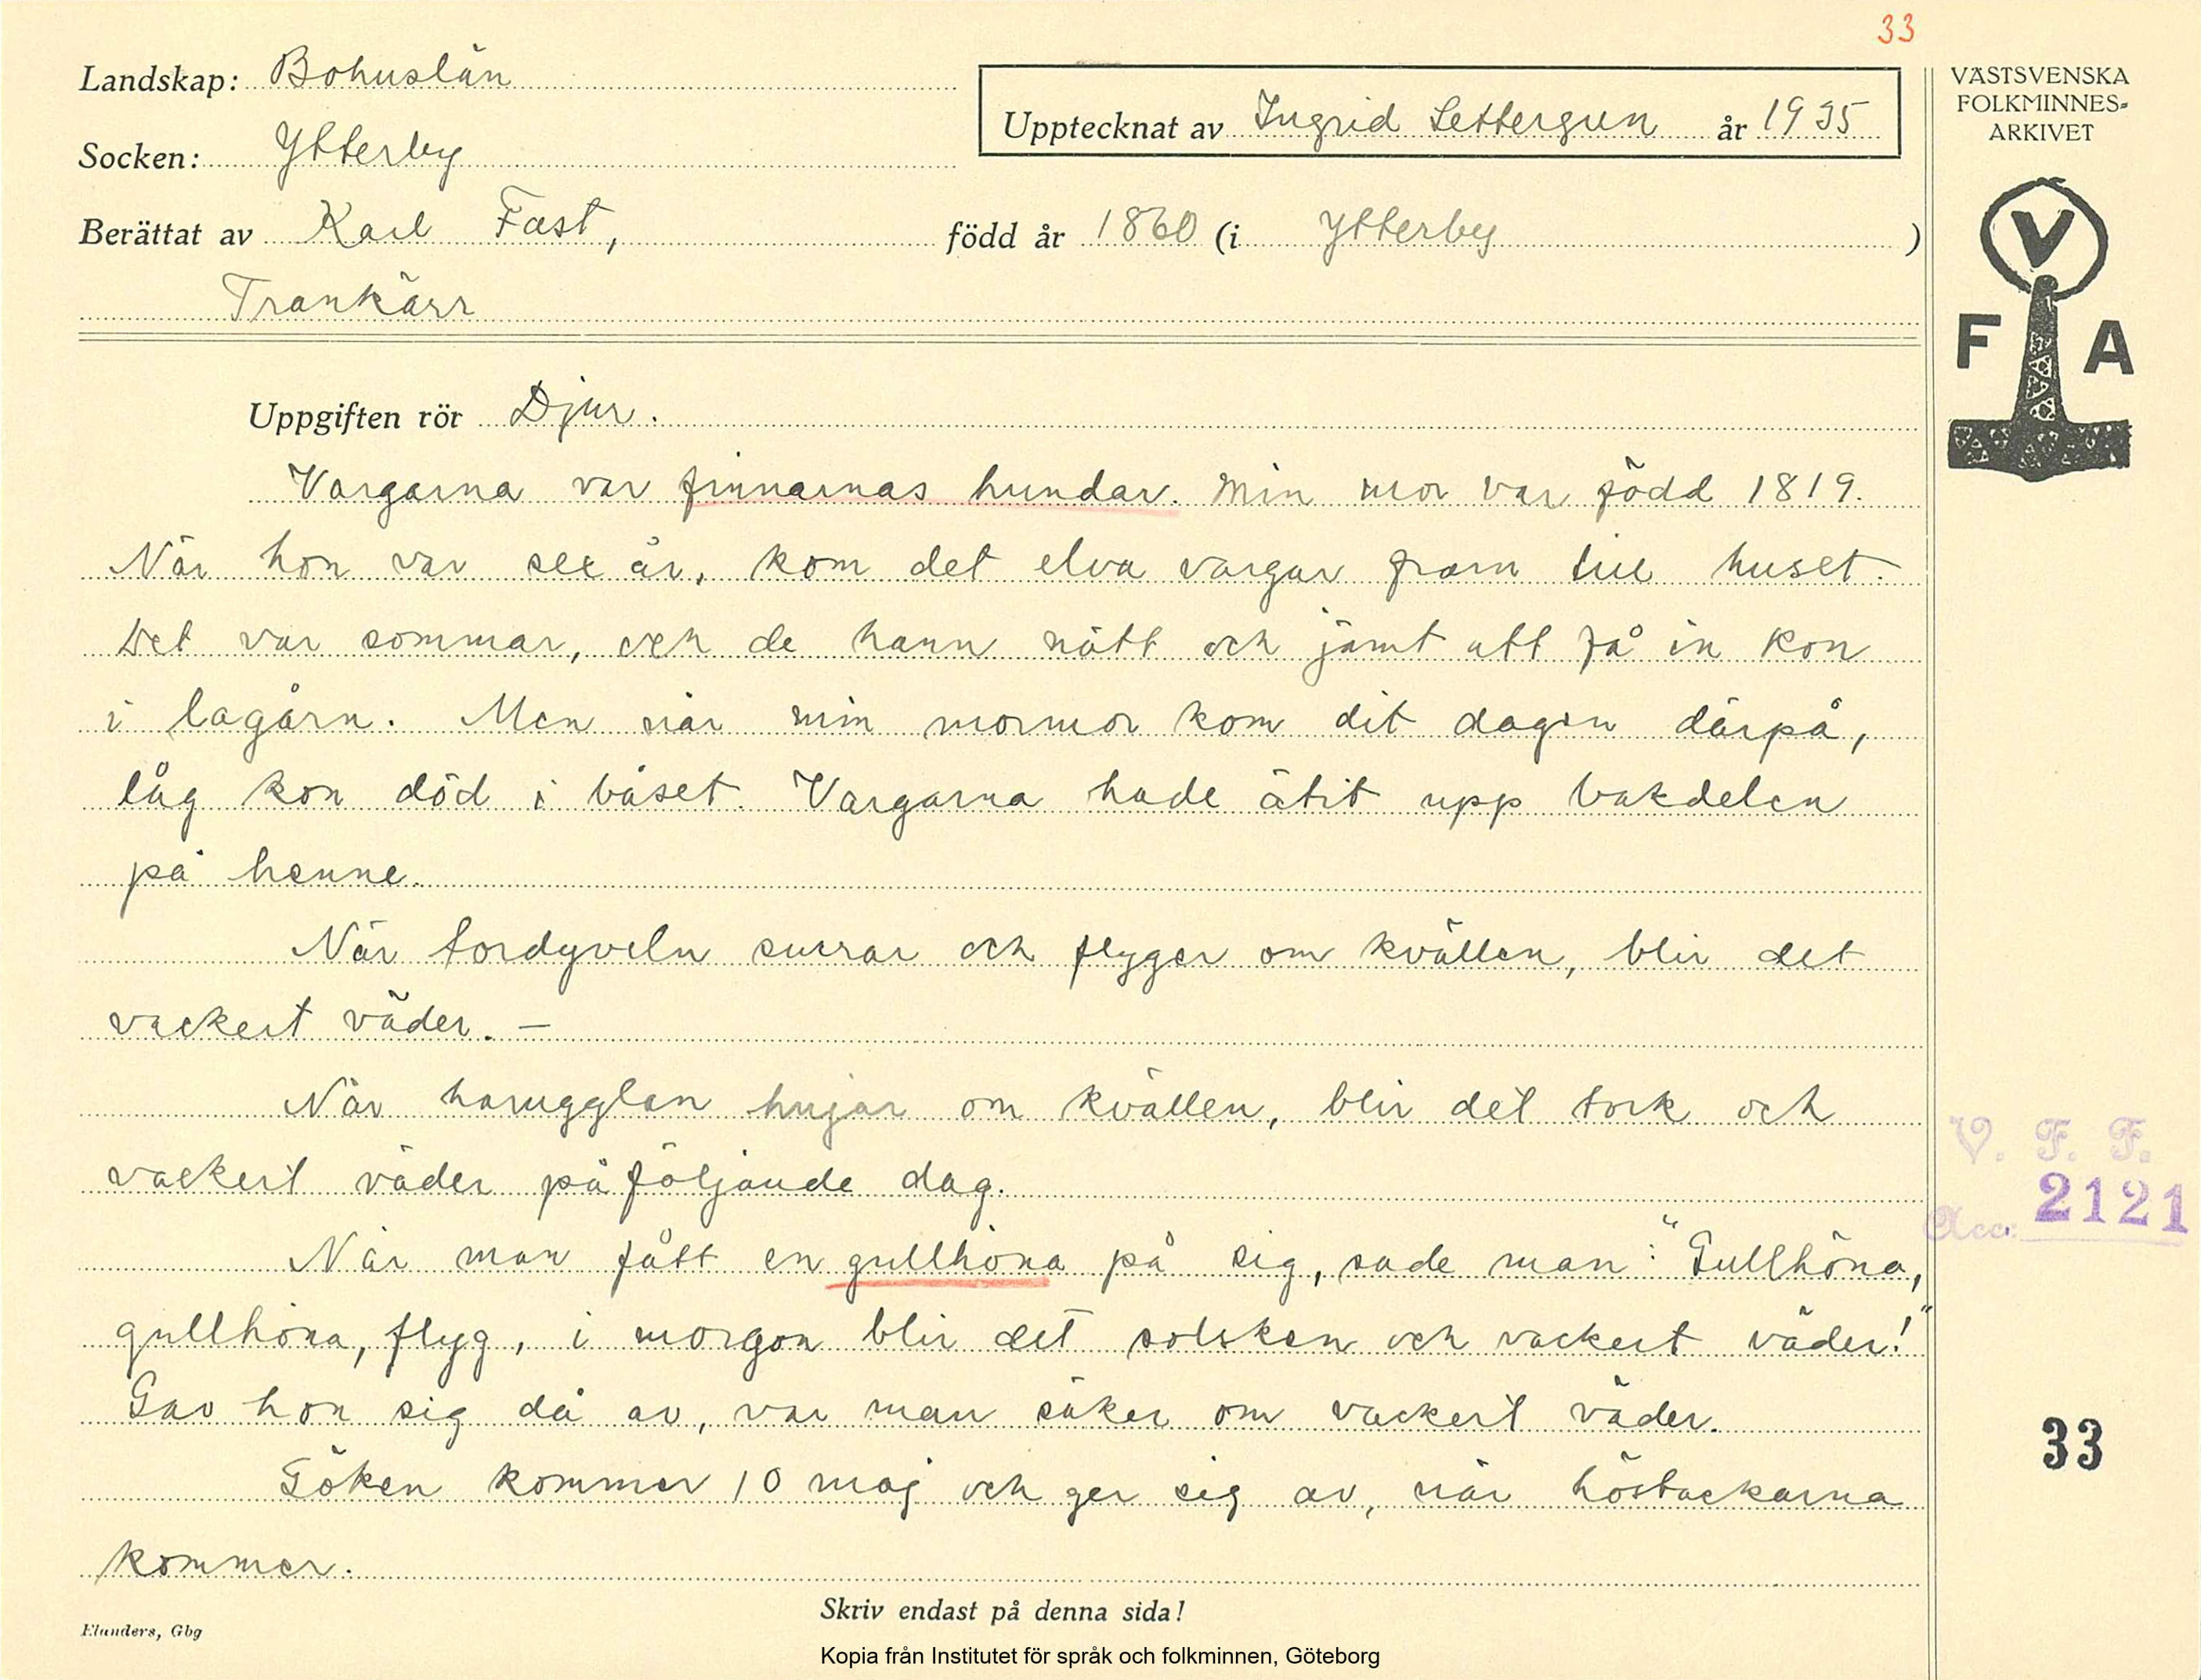 33
Landskap: Bohuslän
Upptecknat av Ingrid Settergren år 1935
Socken: Ytterby
Berättat av Karl Fast, född år 1860 (i Ytterby )
Trankärr
VÄSTSVENSKA
FOLKMINNES-
ARKIVET
V
F A
Uppgiften rör Djur.
Vargarna var finnarnas hundar. Min mor var född 1819.
När hon var sex år, kom det elva vargar fram till huset.
Det var sommar, och de hann nätt och jämt att få in kon
i lagårn. Men när min mormor kom dit dagen därpå,
låg kon död i båset. Vargarna hade ätit upp bakdelen
på henne.
När tordyveln surrar och flyger om kvällen, blir det
vackert väder. –
När harugglan hujar om kvällen, blir det tork och
vackert väder påföljande dag.
När man fått en gullhöna på sig, sade man: "Gullhöna,
gullhöna, flyg, i morgon blir det solsken och vackert väder!"
Gav hon sig då av, var man säker om vackert väder.
Göken kommer 10 maj och ger sig av, när höstackarna
kommer.
V. F. F.
Acc. 2121
33
Skriv endast på denna sida!
Elanders, Gbg
Kopia från Institutet för språk och folkminnen, Göteborg